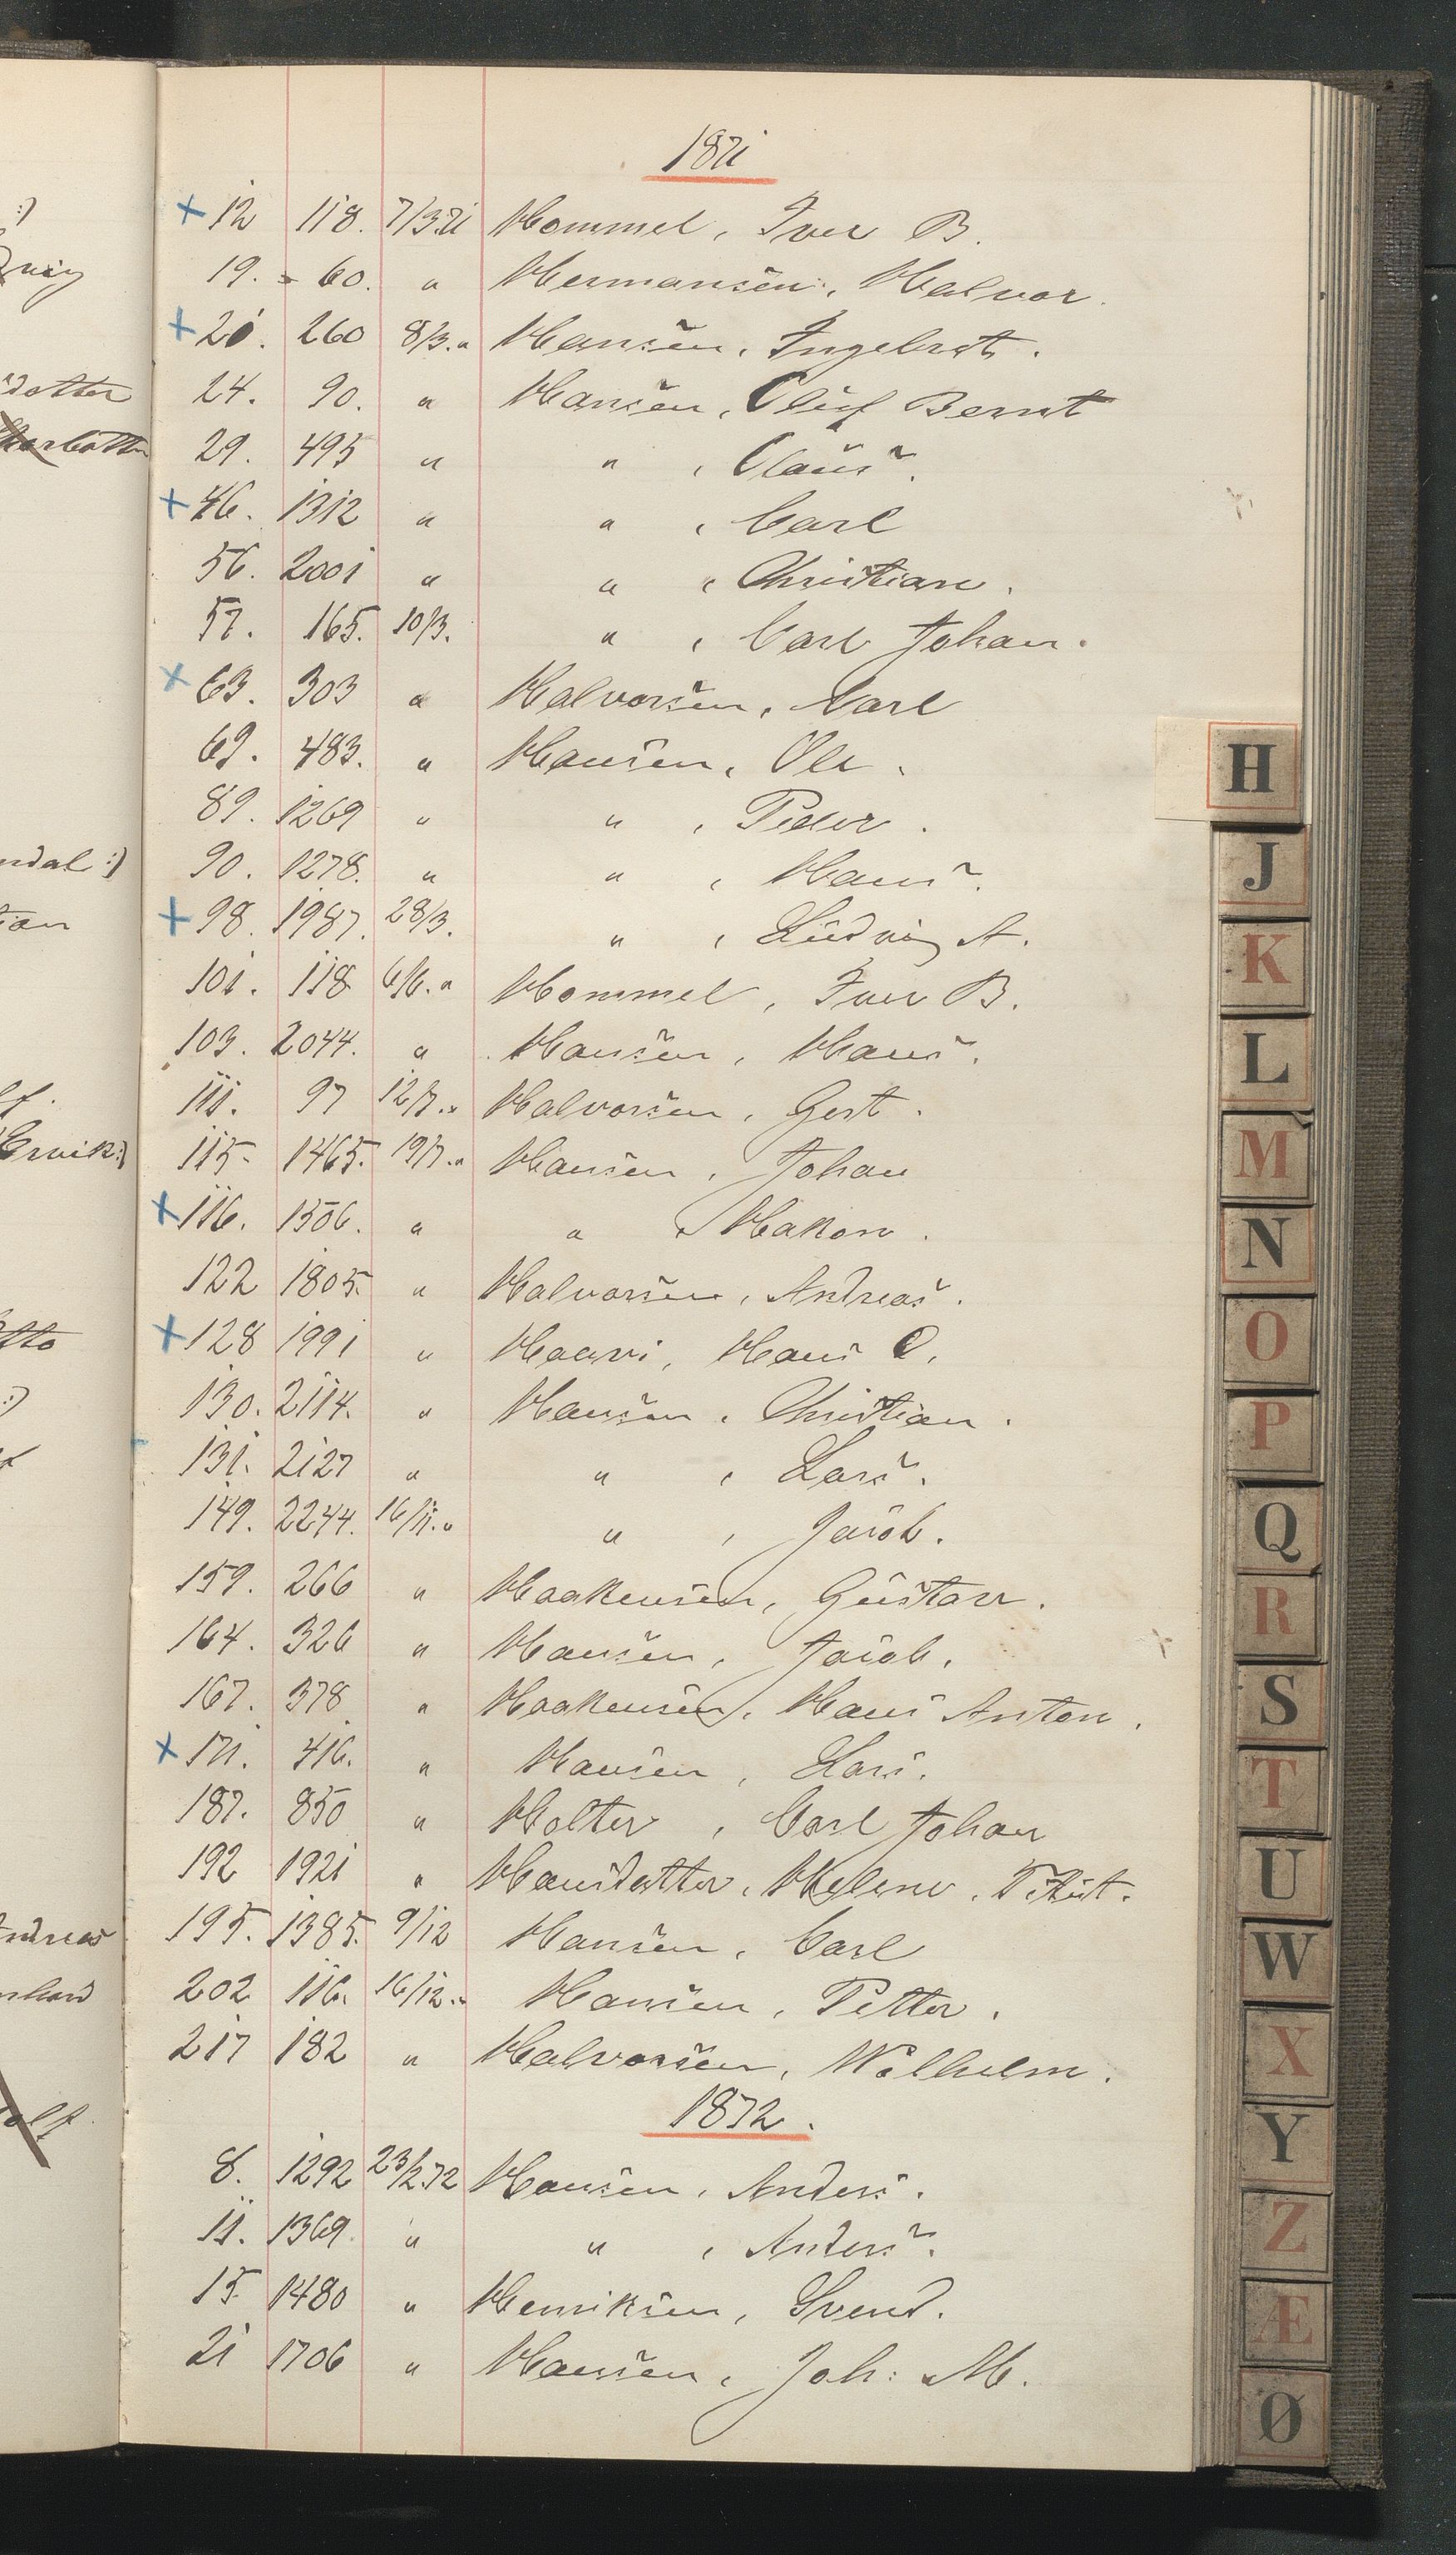 1871
+ 12 118. 7/3.71 Hommel, Iver B.
19. 60. " Hermansen, Halvor.
+ 21. 260 8/3. " Hansen, Ingebret.
24. 90. " Hansen, Oluf Bernt
29. 495 " " , Claus.
+ 46. 1312 " " , Carl
56. 2001 " " , Christian.
57. 165. 10/3. " , Carl Johan.
+ 63. 303 " Halvorsen, Carl
69. 483. " Hansen, Ole.
89. 1269 " " , Peder.
90. 1278. " " , Hans.
+ 98. 1987. 28/3. " , Ludvig A.
101. 118 6/6. " Hommel, Iver B.
103. 2044. " Hansen, Hans.
111. 97 12/7. " Halvorsen, Gert.
115. 1465. 19/7. " Hansen, Johan
+ 116. 1506. " " , Hakon.
122 1805. " Halvorsen, Andreas.
+ 128 1991 " Haavi, Hans O.
130. 2114. " Hansen, Christian.
131. 2127 " " , Lars.
149. 2244. 16/11. " " , Jacob.
159. 266 " Haakensen, Gustav.
164. 326 " Hansen, Jacob.
167. 378 " Haakensen, Hans Anton.
+ 171. 416. " Hansen, Lars.
187. 850 " Holter, Carl Johan
192 1921 " Hansdatter, Helene.
195. 1385. 9/12 Hansen, Carl
202 116. 16/12. " Hansen, Petter.
217 182 " Halvorsen, Wilhelm.
1872.
8. 1292 23/2.72 Hansen, Anders.
11. 1369. " " , Anders.
15. 1480 " Henriksen, Svend.
21 1706 " Hansen, Joh: M.
H
J
K
L
M
N
O
P
Q
R
S
T
U
W
X
Y
Z
Æ
Ø